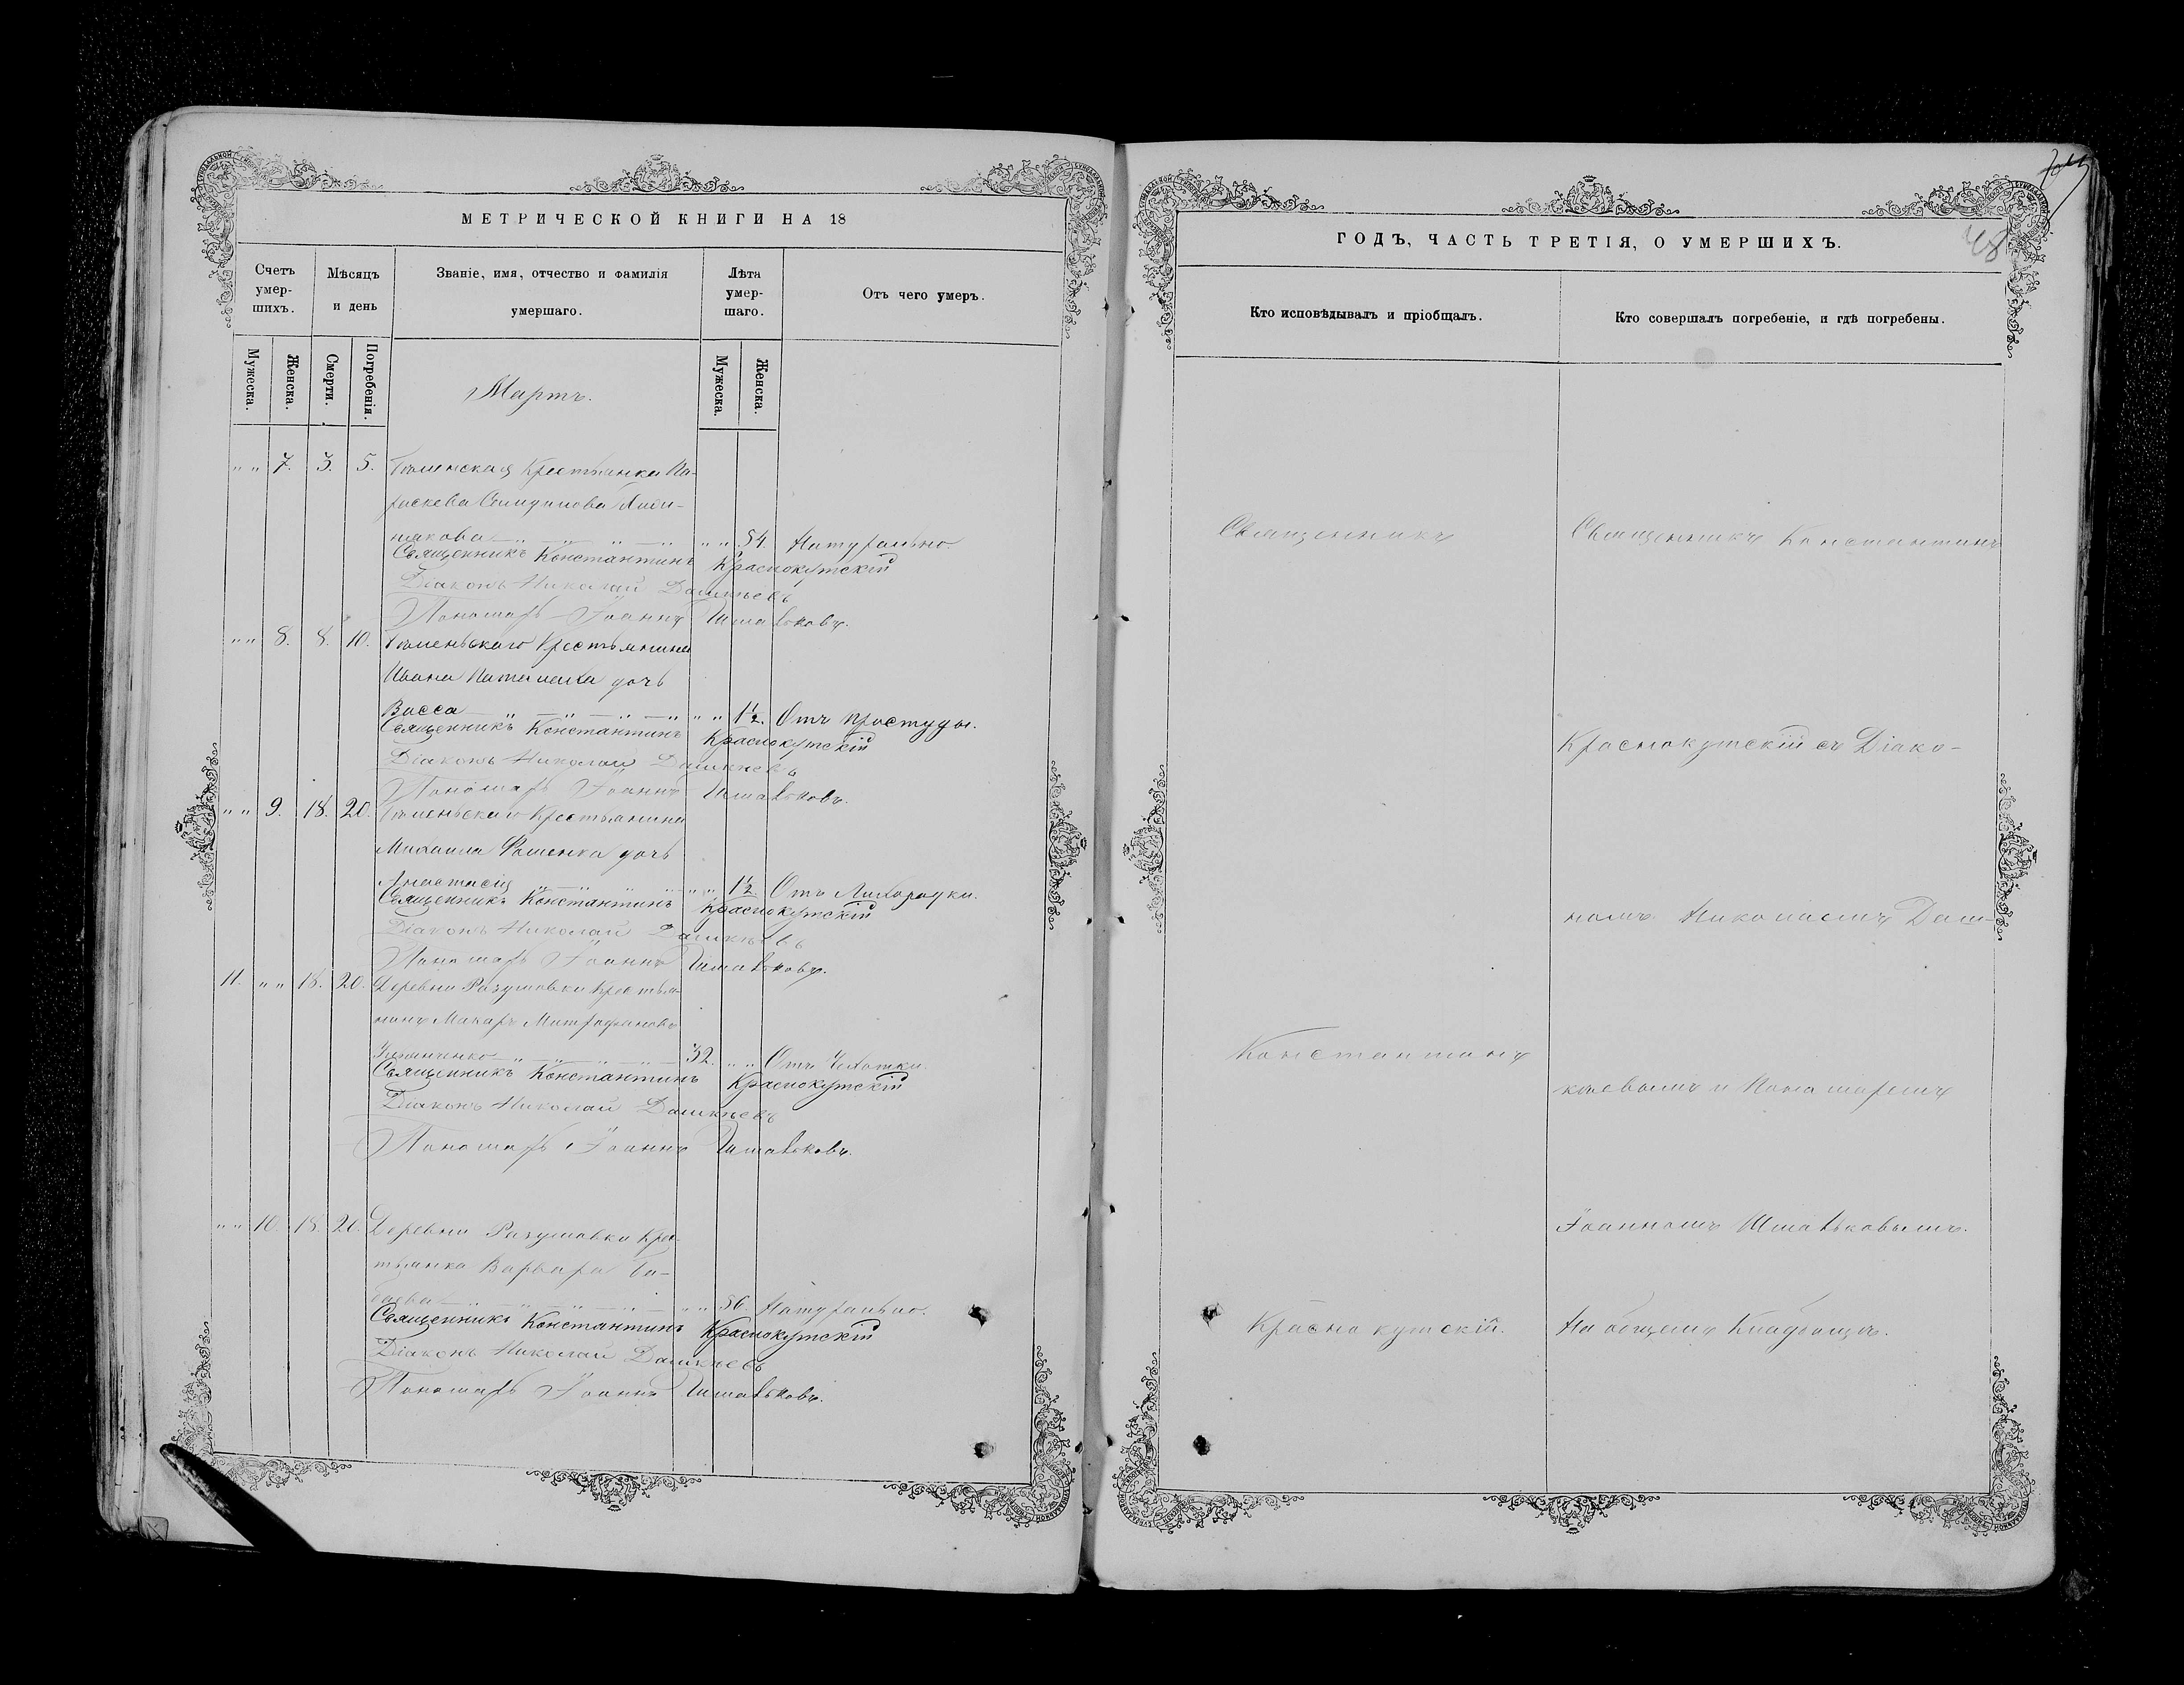 МЕТРИЧЕСКОЙ КНИГИ НА 18
Счетъ умер-шихъ.
Мѣсяцъ и день
Званіе, имя, отчество и фамилія умершаго.
Лѣта умер-шаго.
Отъ чего умеръ.
Мужеска.
Женска.
Смерти.
Погребенія.
Мужеска.
Женска.
Мартъ.
" " 7. 3. 5. Крестьянка Па-
раскева
" " 54. Натурально.
Священникъ Константинъ Краснокутскій
Діаконъ Николай Дашкѣевъ
Пономарь Іоаннъ
" " 8. 8. 10. Крестьянина
Ивана дочь
Васса " " 1½. Отъ простуды.
Священникъ Константинъ Краснокутскій
Діаконъ Николай Дашкѣевъ
Пономарь Іоаннъ
" " 9. 18. 20. Крестьянина
Михаила Фоменка дочь
Анастасія " " 1½. Отъ Лихорадки.
Священникъ Константинъ Краснокутскій
Діаконъ Николай Дашкѣевъ
Пономарь Іоаннъ
11. " " 18. 20. Деревни Разумовки Крестья-
нинъ Макаръ Митрофановъ
32. " " Отъ Чахотки.
Священникъ Константинъ Краснокутскій
Діаконъ Николай Дашкѣевъ
Пономарь Іоаннъ
" " 10. Деревни Разумовки Крес-
тьянка Варвара
" " Натурально.
Священникъ Константинъ Краснокутскій
Діаконъ Николай Дашкѣевъ
Пономарь Іоаннъ
48
ГОДЪ, ЧАСТЬ ТРЕТІЯ, О УМЕРШИХЪ.
Кто исповѣдывалъ и пріобщалъ.
Кто совершалъ погребеніе, и гдѣ погребены.
Священникъ
Константинъ
Краснокутскій.
Священникъ Константинъ
Краснокутскій съ Діако-
номъ Николаемъ Даш-
кѣевымъ и Пономаремъ
Іоанномъ
На общемъ Кладбищѣ.